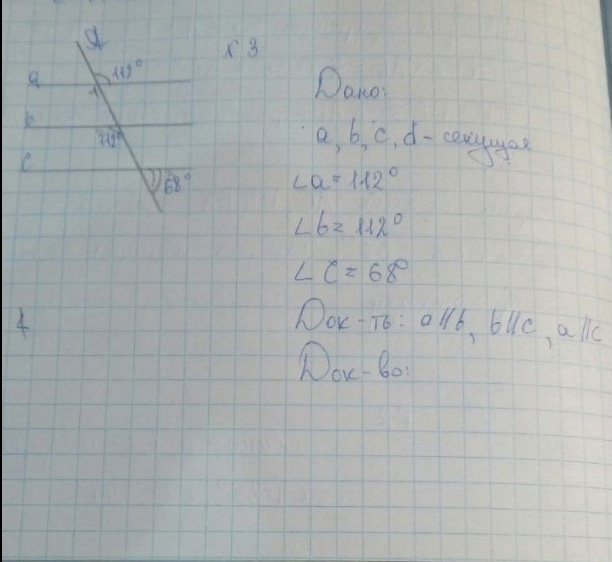 d
a 112°
1
b
112°
c
68°
3
Дано:
a, b, c, d - секущая
∠a = 112°
∠b = 112°
∠C = 68°
Док-ть: a∥b, b∥c, a∥c
Док-во: